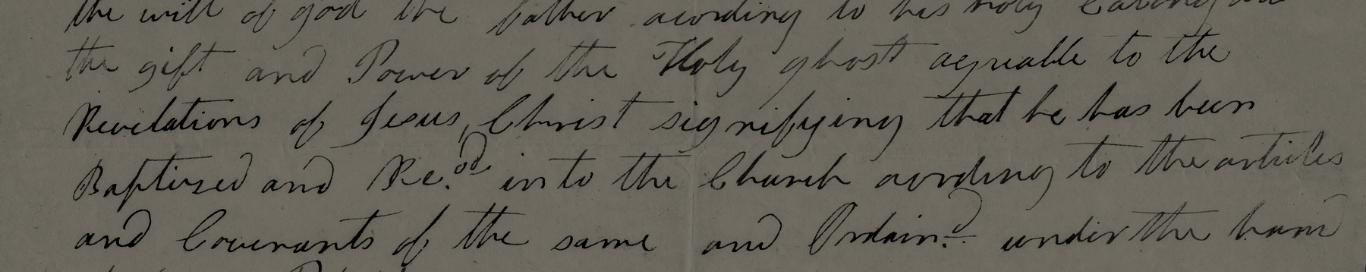 the will of god the father acording to his holy Calling and
the gift and Power of the Holy ghost agreable to the
Revelations of Jesus Christ signifiying that he has been
Baptised and Re.cd into the Church acording to the articles
and Covenants of the same and Ordain.d under the hand